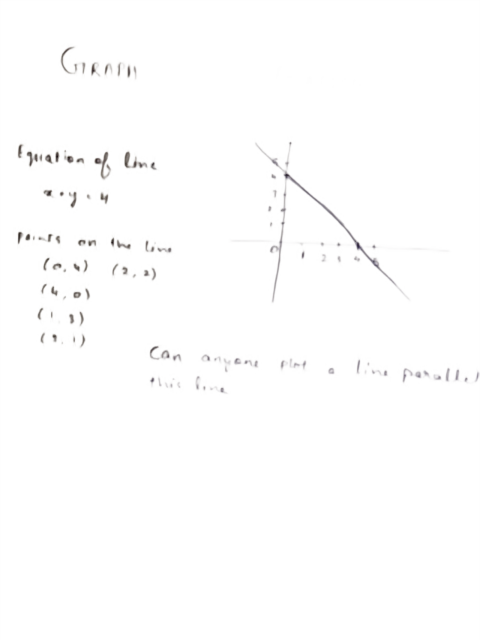 GRAPH
Equation of line
x + y = 4
points on the line
(0, 4) (2, 2)
(4, 0)
(1, 3)
(3, 1)
5
4
3
2
1
0 1 2 3 4 5
Can anyone plot a line parallel
this line